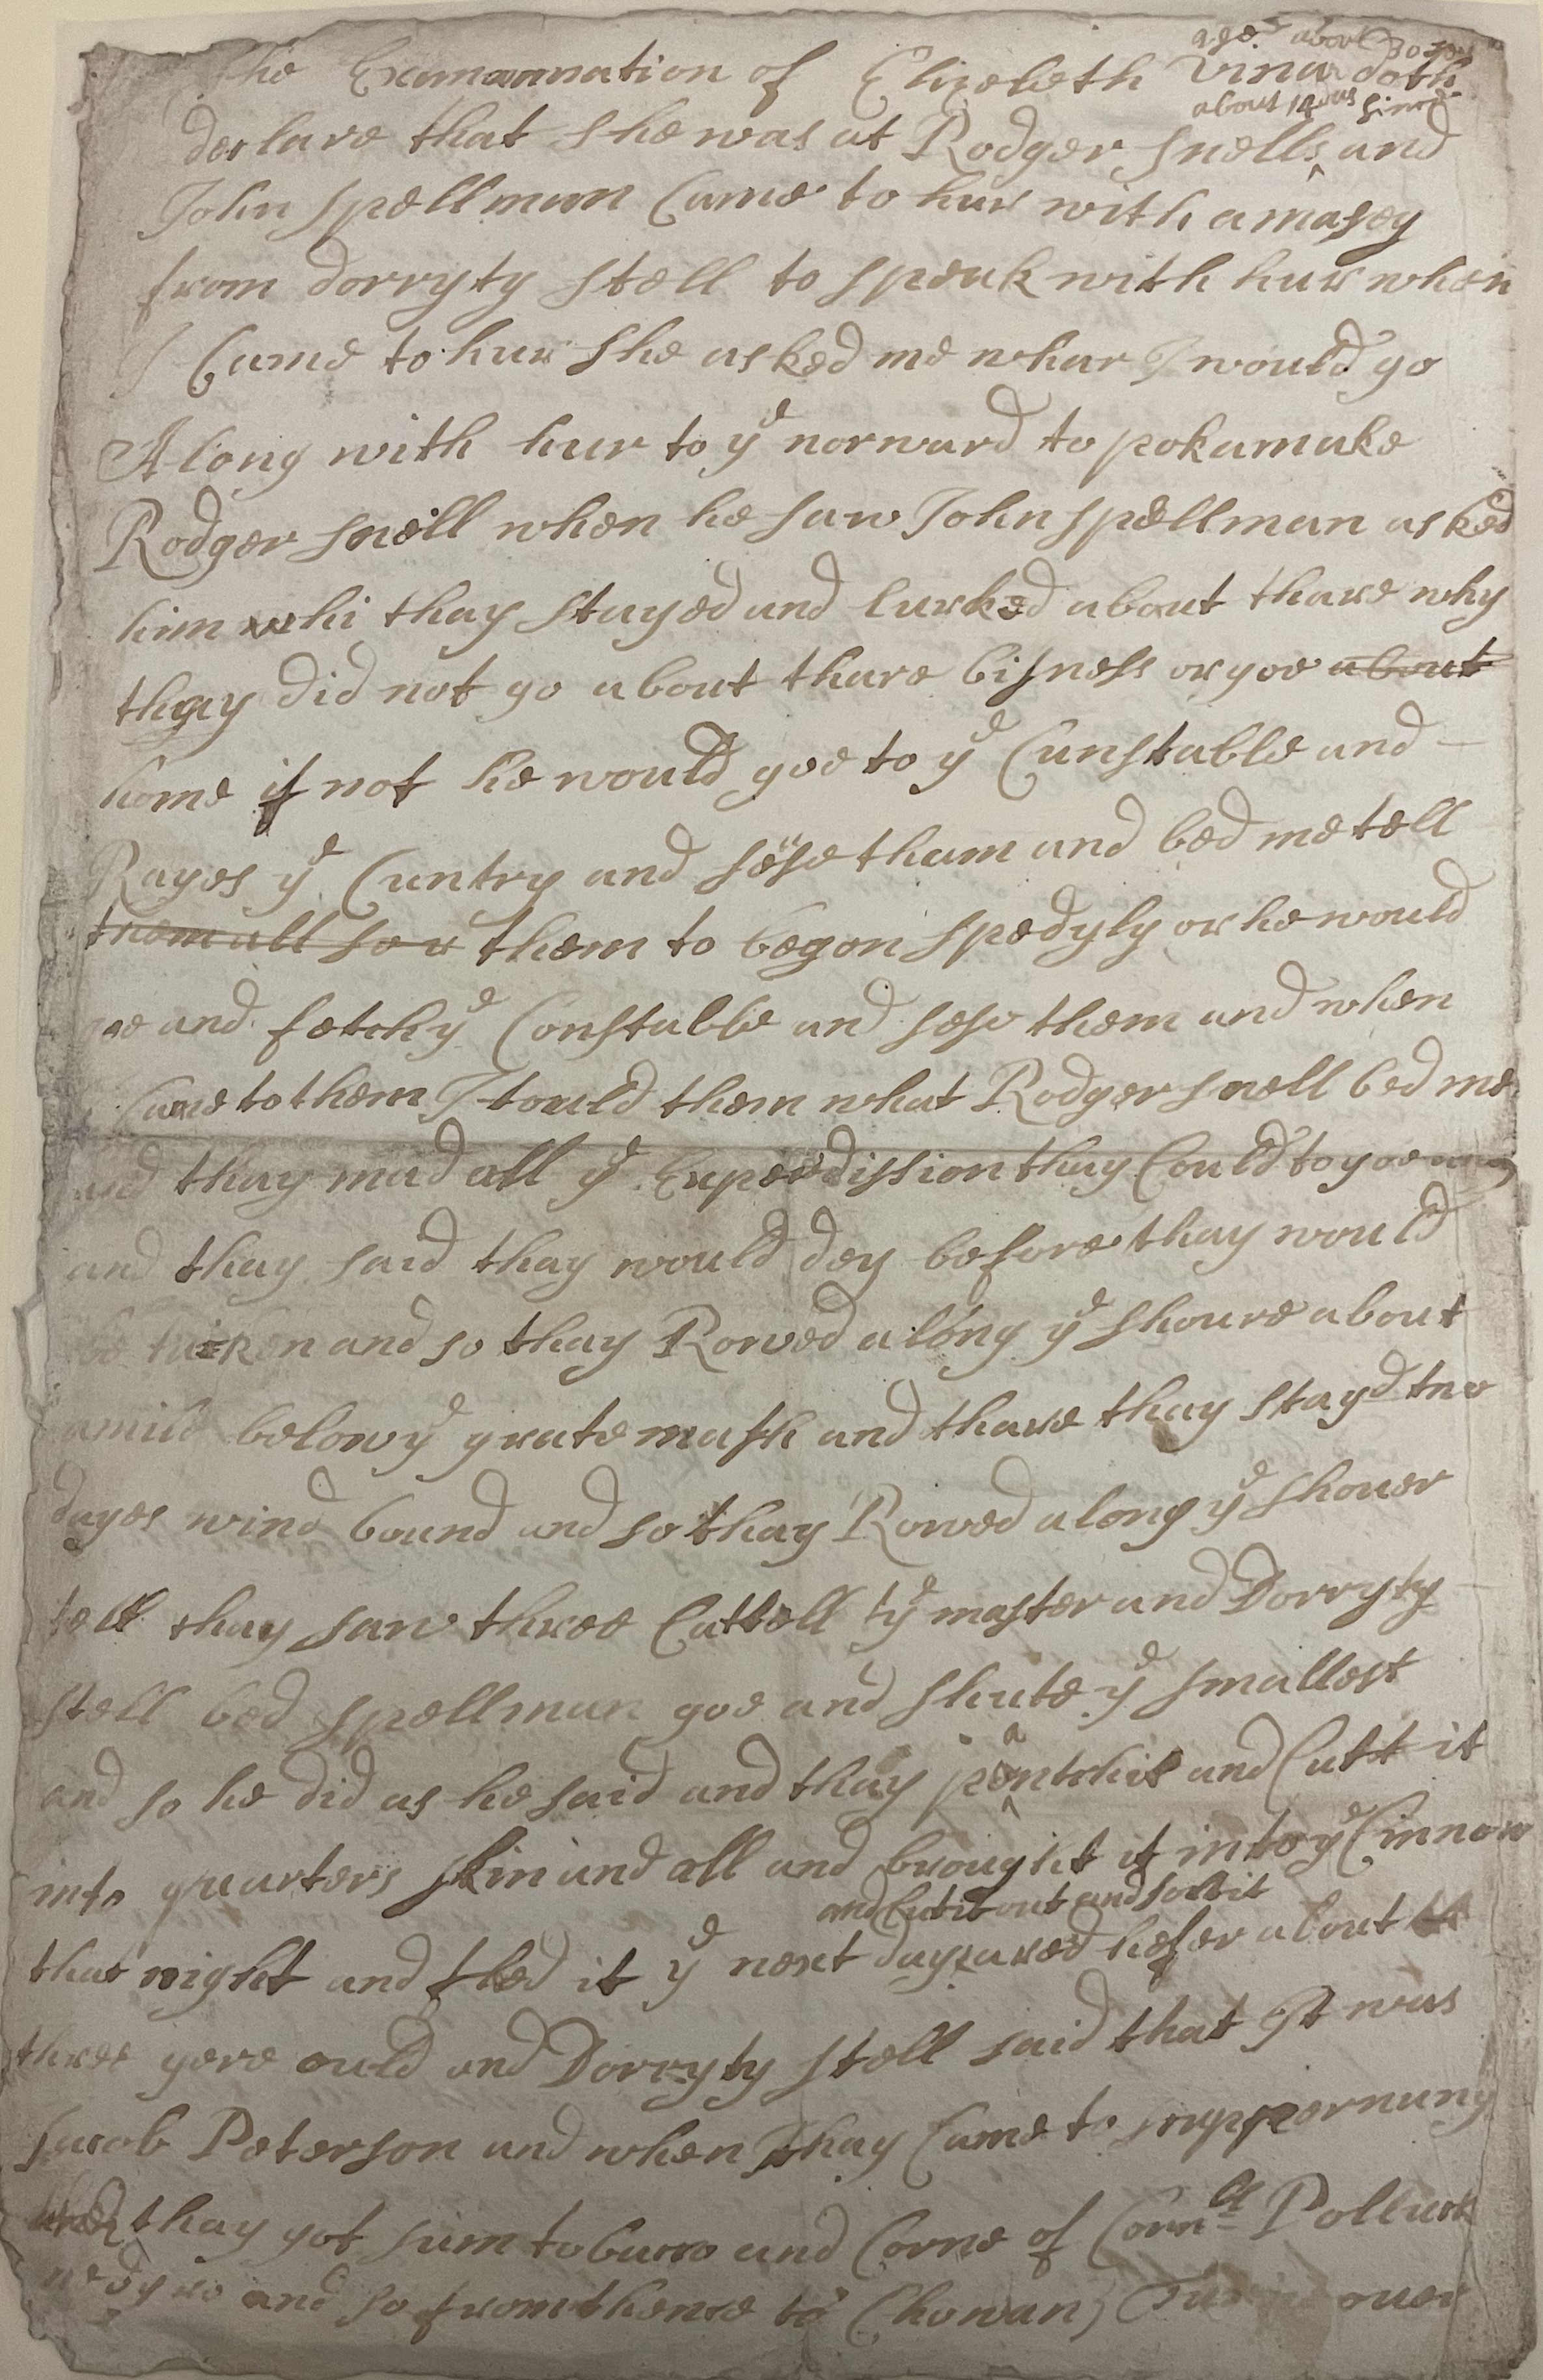 aged about 30 yrs
The Examannation of Elizebeth Vinar doth
about 14 das sinc
declare that she was at Rodger Snells ^ and
John Spellman Came to hur with a masey
from dorryty Stell to speak with hur when
I Came to hur She asked me whar I would go
Along with hur to ye norward to pokamuke
Rodger Snell when he saw John Spellman asked
him whi thay Stayed and lurked about thare why
thay did not go about thare bisness or goe about
home if not he would goe to ye Cunstable and -
Rayes ye Cuntry and sese tham and bed me tell
them all so r them to begon spedyly or he would
goe and fetch ye Constable and sese them and when
I Came to them I tould them what Rodger Snell bed me
and thay mad all ye Experdission thay Could to goe away
and thay said thay would dey before thay would
be taken and so thay Rowed along ye Shoure about
a mile below ye grate mash and thare thay stayd two
dayes wind bound and so thay Rowed along ye Shouer
tell thay saw three Cattell ye master and Dorryty
Stell bed Spellman goe and shute ye smallest
and so he did as he said and thay pantchit and Cutt it
into quarters skin and all and brought it into ye Cinnow
and Cut it out and solt it
that night and fled it ye next day a red hefer about
three yere ould and Dorryty Stell said that It was
Jacob Peterson and when thay Came to suppernung
thay got sum tobacco and Corne of Cornll Pollick
negro and so from thence to Chowan) Turne over